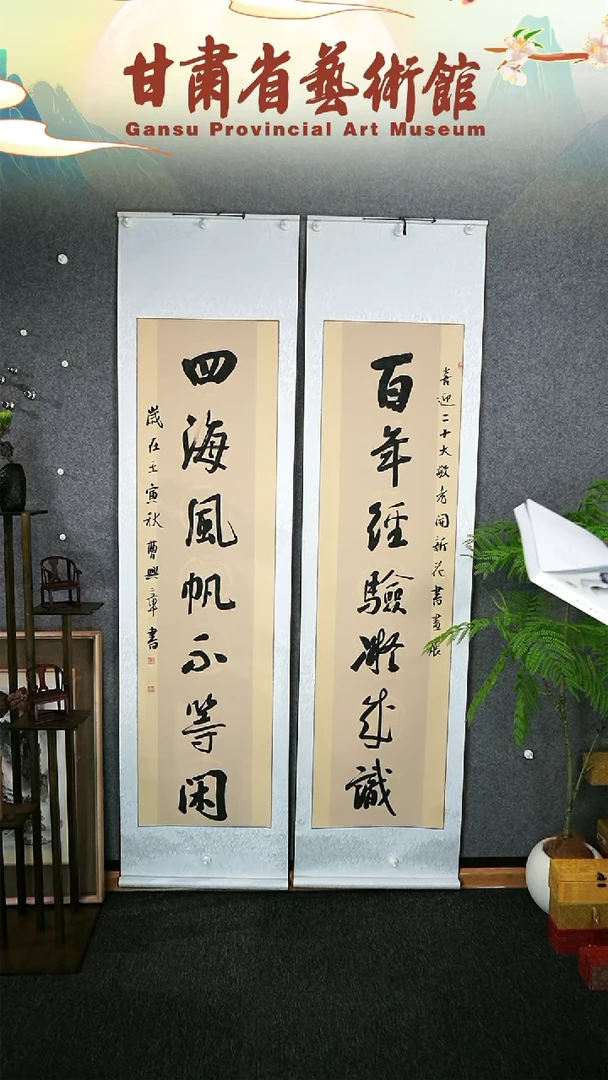 甘肅省藝術館
Gansu Provincial Art Museum
喜迎二十大敬老開新花書畫展
百年經驗凝成識
四海風帆不等閑
歲在壬寅秋曹興章書